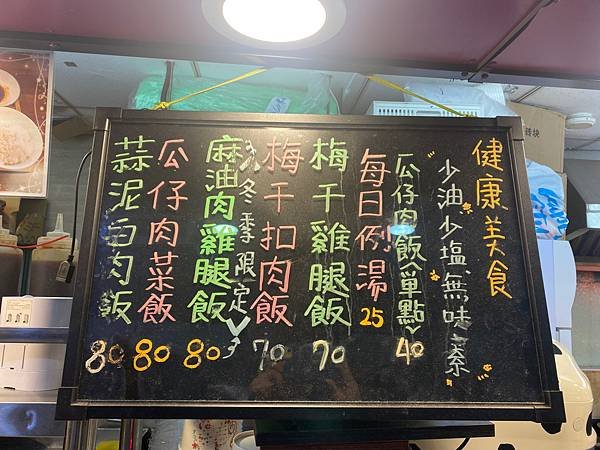 健康美食
少油,少塩,無味素
瓜仔肉飯(單點) 40
每日例湯 25
梅干雞腿飯 70
梅干扣肉飯 70
冬季限定
麻油肉雞腿飯 80
瓜仔肉菜飯 80
蒜泥白肉飯 80